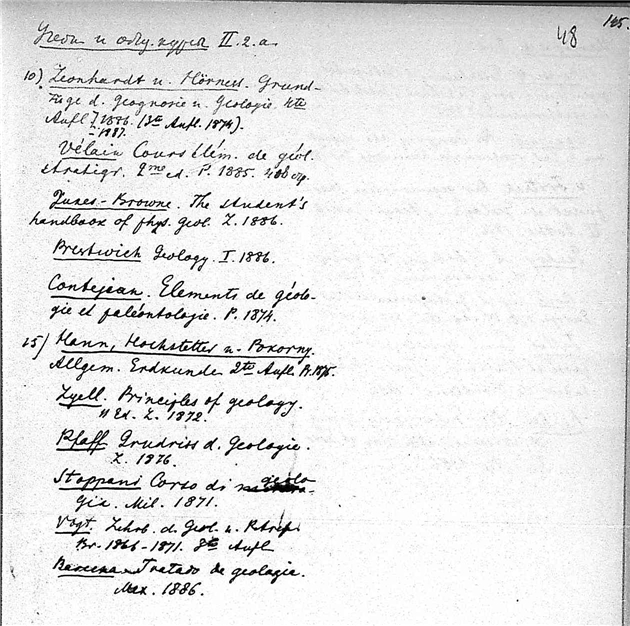 145.
48
Учебн. и общ. курсы II. 2. a.
10) Leonhardt u. Hörness. Grund-
züge d. Geognosie u. Geologie. 4te
Aufl. 1886. (3te Aufl. 1874).
- 1887.
Vélain Cours élém. de géol.
stratigr. 2me ed. P. 1885.
Jukes-Browne. The student's
handbook of phys. geol. L. 1886.
Prestwich Geology. I. 1886.
Contejean. Elements de géolo-
gie et paléontologie. P. 1874.
15) Hann, Hochstetter u. Pokorny.
Allgem. Erdkunde 2te Aufl. Pr. 1875.
Lyell. Principles of geology.
11 Ed. L. 1872.
Pfaff Grudriss d. Geologie.
L. 1876.
Stoppani Corso di geolo-
gia. Mil. 1871.
Vogt. Lehrb. d. Geol. u. Petref.
Br. 1866-1871. 3te Aufl
Barcena Tratado de geologia.
Mex. 1886.